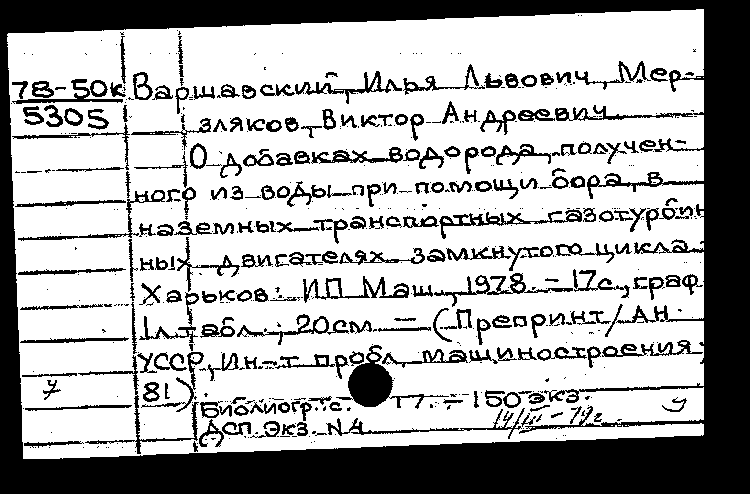 78-50к
5305
Варшавский, Илья Львович, Мер-
зляков, Виктор Андреевич
О добавках водорода, получен-
ного из воды при помощи бора, в
наземных транспортных газотурбин
ных двигателях замкнутого цикла.
Харьков: ИП Маш., 1978. - 17с., граф
1л табл.; 20см - (Препринт/Ан
УССР, Ин-т пробл. машиностроения;
81).
Библиогр.: с. 17. - 150 экз.
ДСП. Экз. N 4
14/III-79г.
у